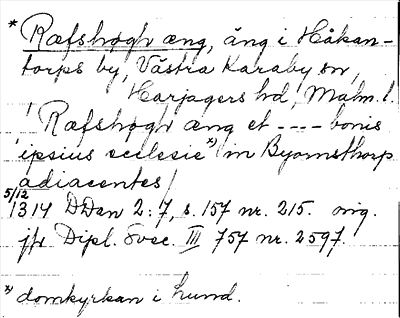 * Ræfshøgh æng, äng i Håkan-
torps by, Västra Karaby sn,
Harjagers hd, Malm. l.
Ræfshøgh æng et ---- bonis
ipsius ecclesie *) in Byornsthorp
adiacentes
5/12 1314 DDan 2:7, s. 157 nr. 215. orig.
jfr Dipl. Svec. III 757 nr. 2597.
*) domkyrkan i Lund.